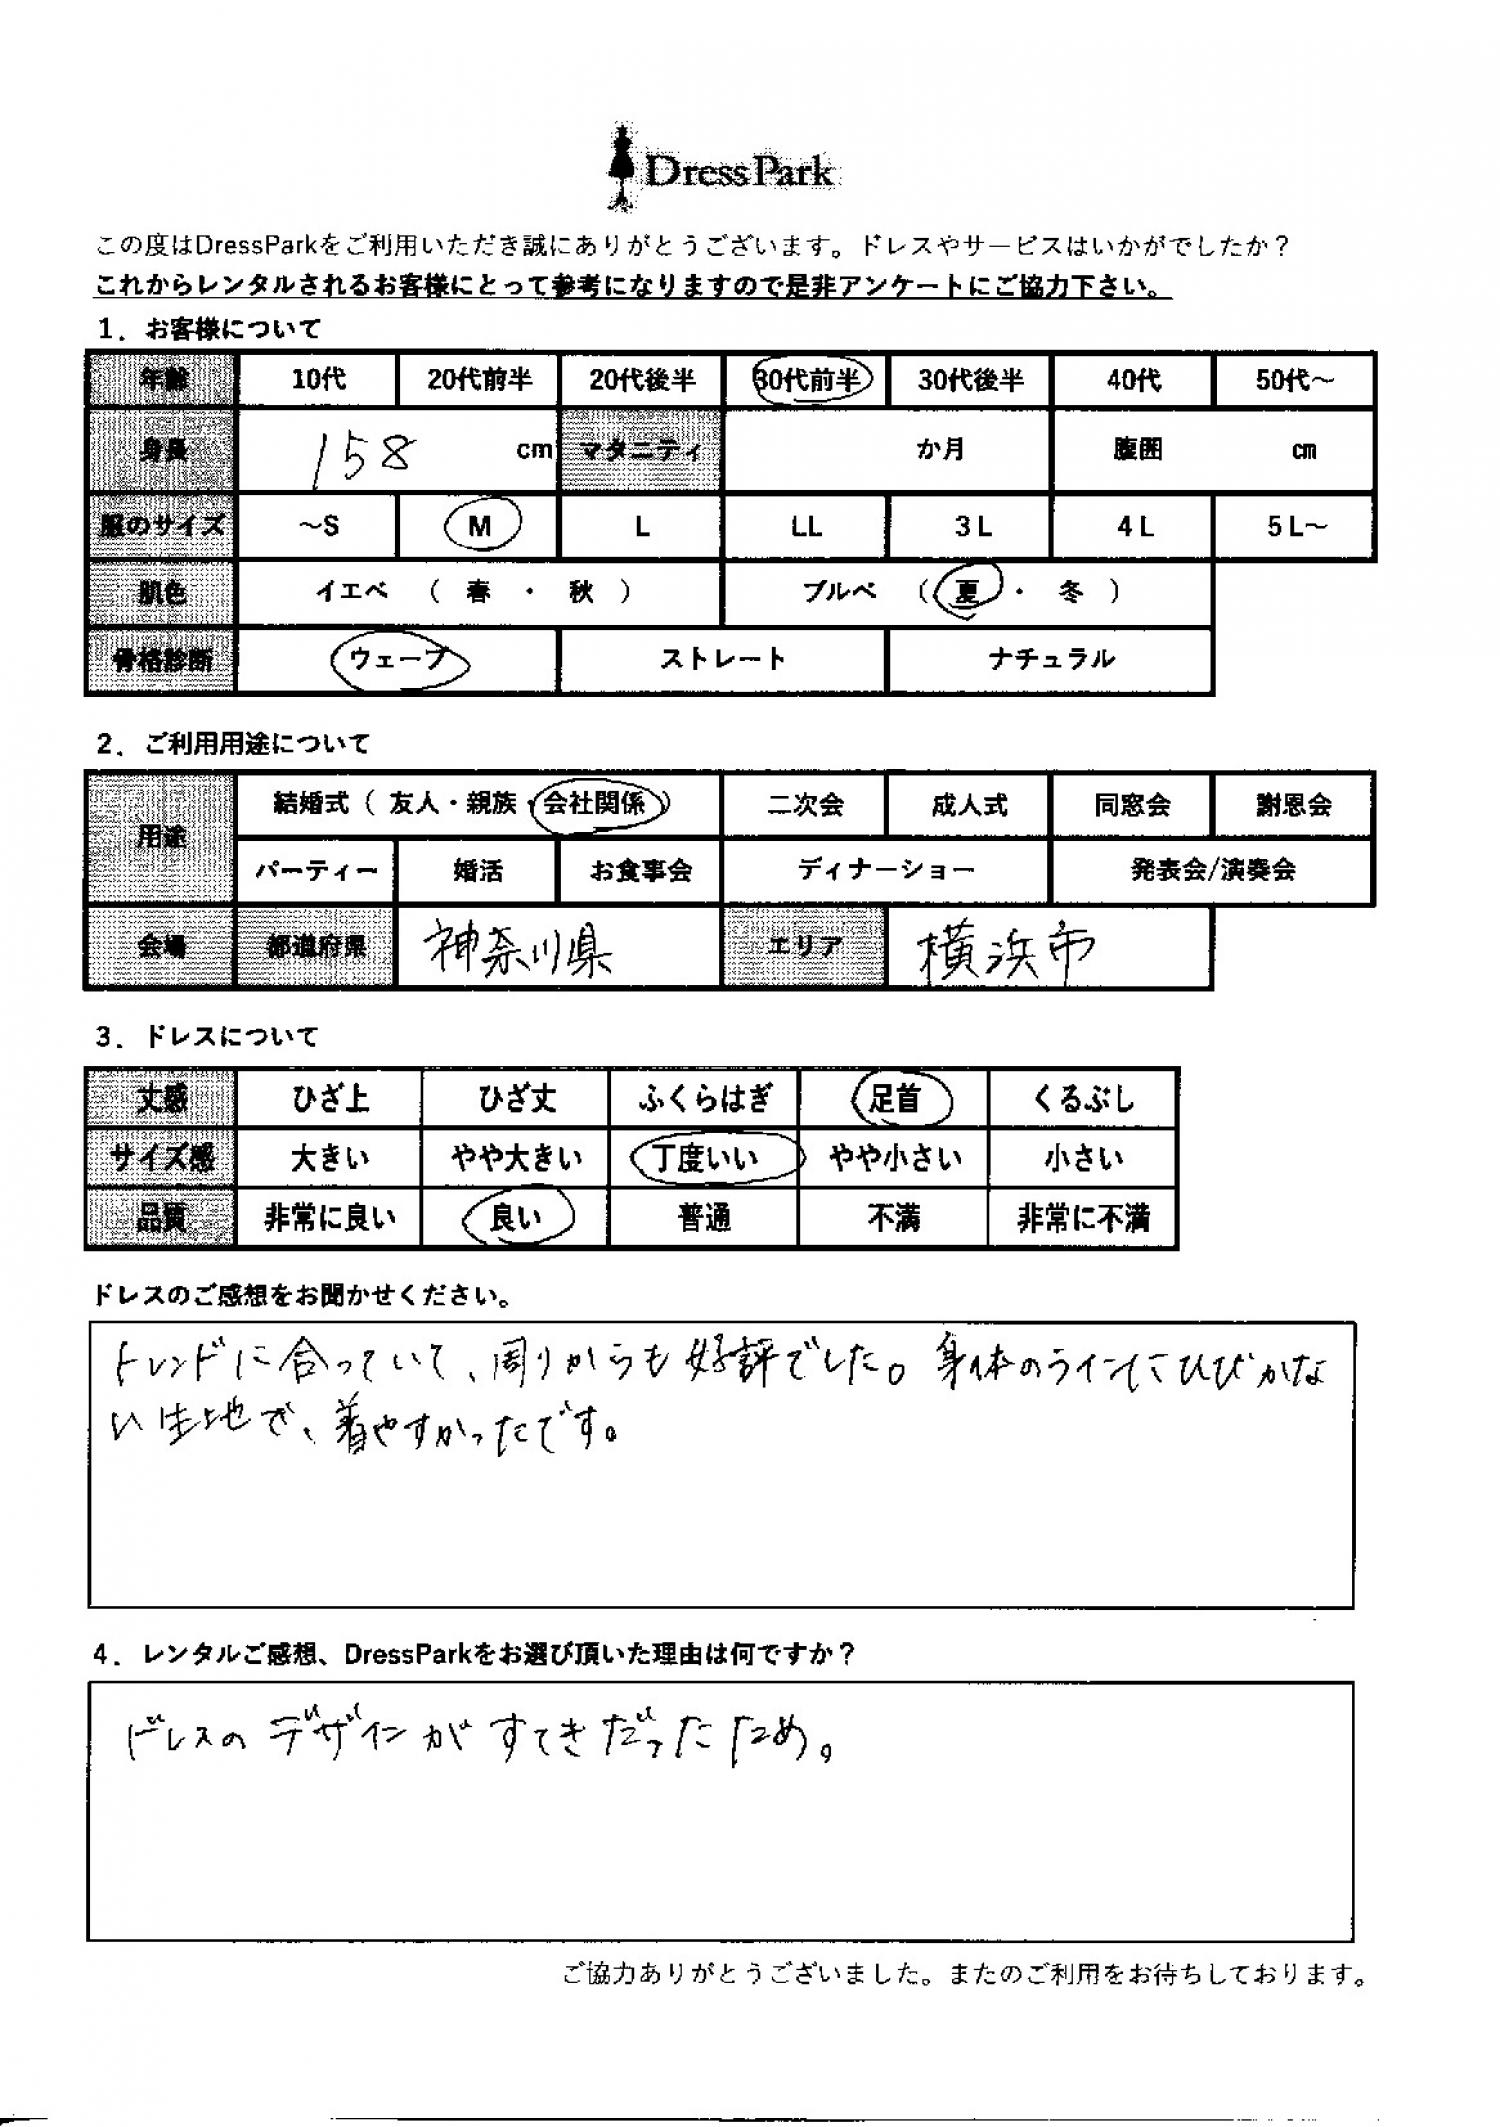 DressPark
この度はDressParkをご利用いただき誠にありがとうございます。ドレスやサービスはいかがでしたか？
これからレンタルされるお客様にとって参考になりますので是非アンケートにご協力下さい。
1．お客様について
年齢 10代 20代前半 20代後半 30代前半 30代後半 40代 50代～
身長 158 cm マタニティ か月 腹囲 ㎝
服のサイズ ～S M L LL 3L 4L 5L～
肌色 イエベ （ 春 ・ 秋 ） ブルベ （ 夏 ・ 冬 ）
骨格診断 ウェーブ ストレート ナチュラル
2．ご利用用途について
用途 結婚式（ 友人・親族・会社関係 ） 二次会 成人式 同窓会 謝恩会
パーティー 婚活 お食事会 ディナーショー 発表会/演奏会
会場 都道府県 神奈川県 エリア 横浜市
3．ドレスについて
丈感 ひざ上 ひざ丈 ふくらはぎ 足首 くるぶし
サイズ感 大きい やや大きい 丁度いい やや小さい 小さい
品質 非常に良い 良い 普通 不満 非常に不満
ドレスのご感想をお聞かせください。
トレンドに合っていて、周りからも好評でした。身体のラインにひびかな
い生地で、着やすかったです。
4．レンタルご感想、DressParkをお選び頂いた理由は何ですか？
ドレスのデザインがすてきだったため。
ご協力ありがとうございました。またのご利用をお待ちしております。